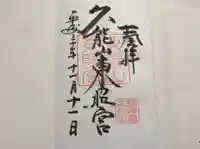 奉拝
久能山東照宮
平成三十年十一月十一日